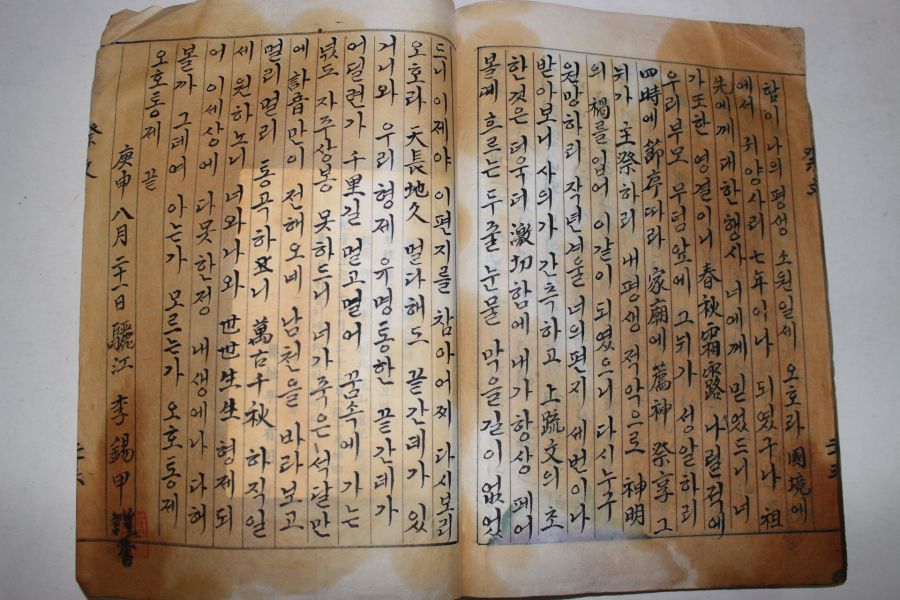 함이 나의평생 소원일세 오호라 國境에
에서 귀양사리 七年이나 되였구나 祖
先에게 대한행사 너에게 믿었드니 너
가 王한 영결이니 春秋霜露 나릴적에
우리부모 무덤앞에 그뉘가 성알하리
四時에 節序따라 家廟에 薦神 祭享 그
뉘가 主祭하리 내평생 적악으로 神明
의 禍를입어 이갈이 되였으니 다시누구
원망하리 작년겨울 너의편지 세번이나
받아보니 사의가간측하고 上疏文의 초
한것은 더욱더 激切함에 내가항상 페여
볼께 흐르는 두줄눈물 막을길이 없었
드니 이제야 이편지를 참아어찌 다시보리
오호라 天長地久 멀다해도 끝간데가 있
거니와 우리형제 유명통한 끝간데가
어딜련가 千里길 멀고멀어 꿈속에 가는
넋도 자주상봉 못하드니 너가죽은 석달만
에 訃音만이 전해오네 남천을 바라보고
멀리멀리 통곡하오니 萬古千秋 하직일
세 원하노니 너와나와 世世生生 형제되
어 이세상에 다못한정 내생에나 다해
볼까 그데여 아는가 모르는가 오호통제
오호통제 끝
庚申 八月 二十一日 驪江 李錫甲 謹書
祭文